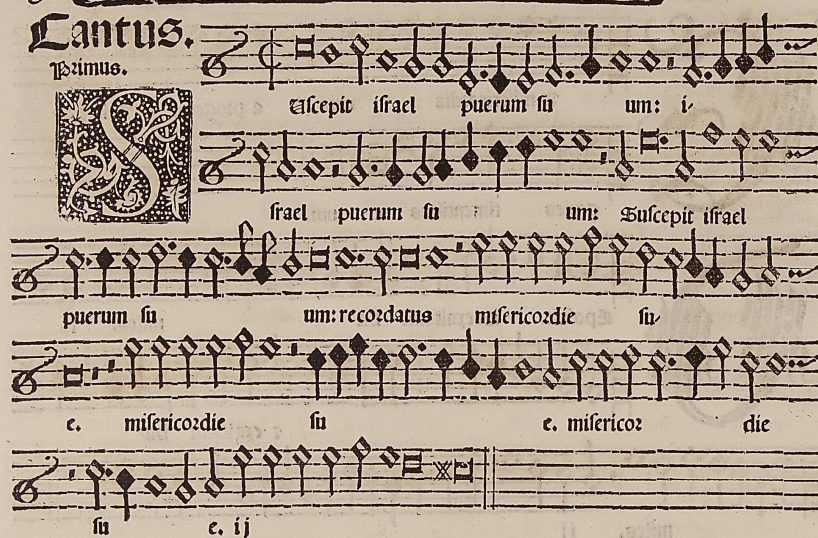 Cantus.
Primus.
SUscepit israel puerum su um: i-
srael puerum su um: Suscepit israel
puerum su um: recordatus misericordie su-
e. misericordie su e. misericor die
su e. ij